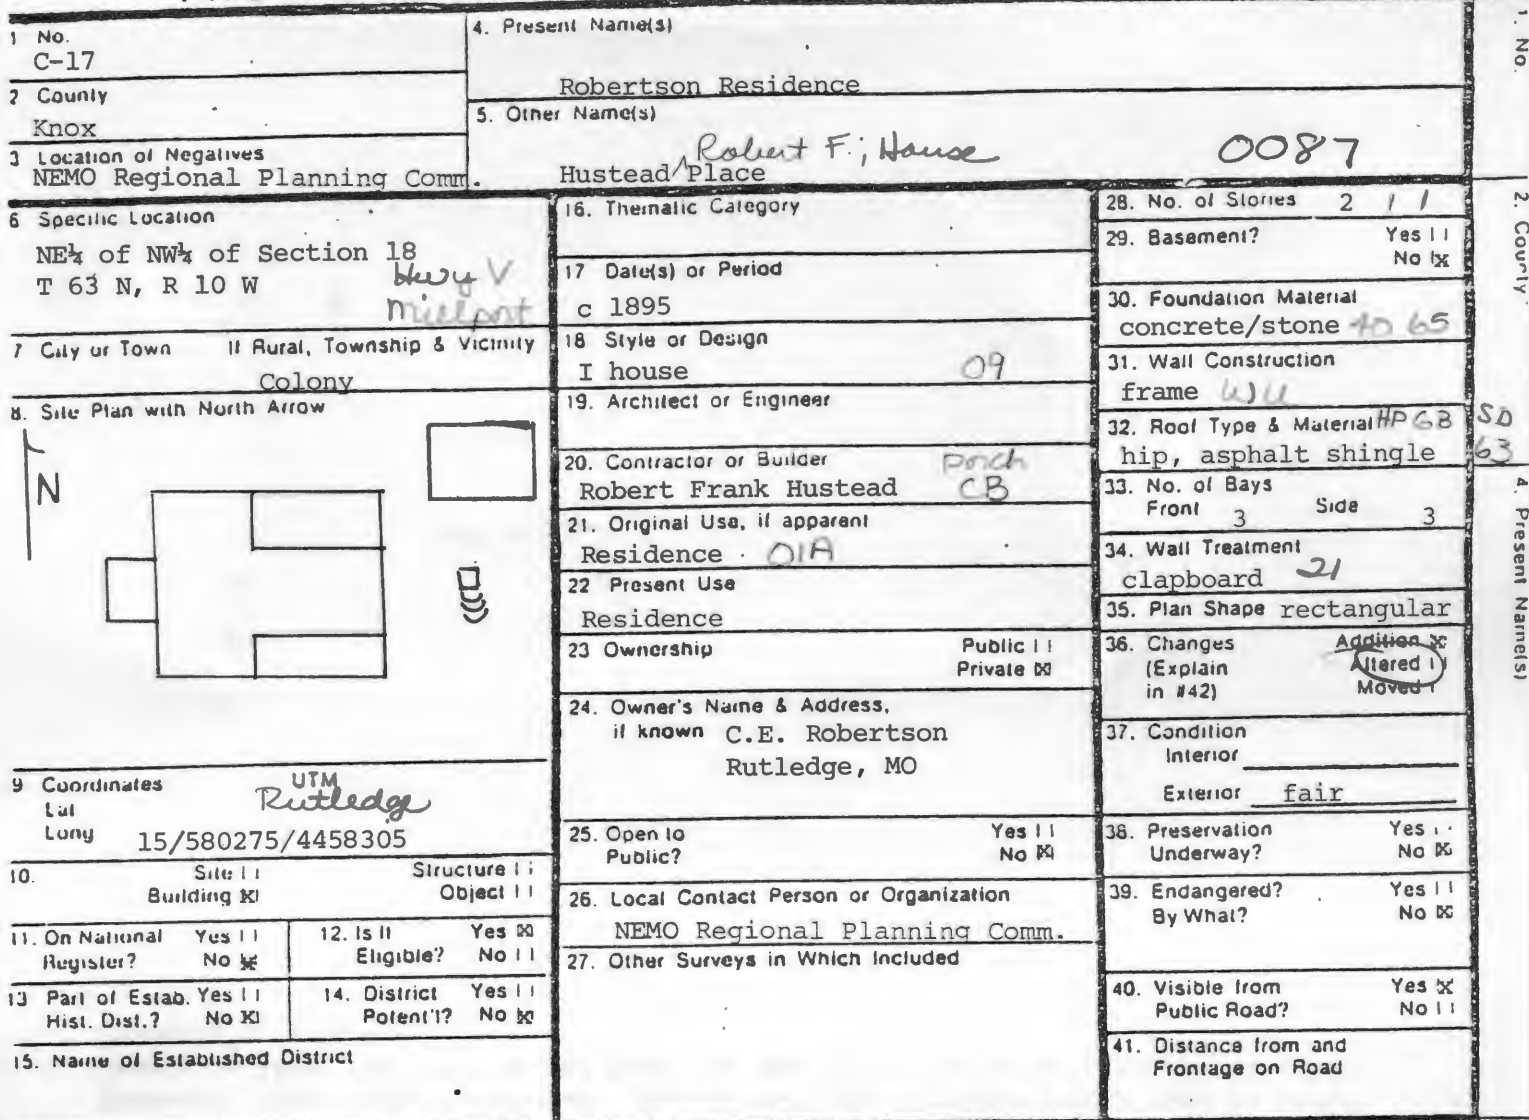 1 No.
C-17
2 County
Knox
3 Location of Negatives
NEMO Regional Planning Comm.
4. Present Name(s)
Robertson Residence
5. Other Name(s)
Robert F.; House
Hustead Place
0087
6 Specific Location
NE¼ of NW¼ of Section 18
T 63 N, R 10 W
Hwy V
Millport
7 City or Town If Rural, Township & Vicinity
Colony
8. Site Plan with North Arrow
N
9 Coordinates UTM
Lat
Long
Rutledge
15/580275/4458305
10. Site Structure
Building X Object
11. On National Register? Yes
No X
12. Is It Eligible? Yes X
No
13 Part of Estab. Hist. Dist.? Yes
No X
14. District Potent'l? Yes
No X
15. Name of Established District
16. Thematic Category
17 Date(s) or Period
c 1895
18 Style or Design
I house 09
19. Architect or Engineer
20. Contractor or Builder
Robert Frank Hustead
porch
CB
21. Original Use, if apparent
Residence 01A
22 Present Use
Residence
23 Ownership Public
Private X
24. Owner's Name & Address,
if known C.E. Robertson
Rutledge, MO
25. Open to Yes
Public? No X
26. Local Contact Person or Organization
NEMO Regional Planning Comm.
27. Other Surveys in Which Included
28. No. of Stories 2
29. Basement? Yes
No X
30. Foundation Material
concrete/stone 40 65
31. Wall Construction
frame WU
32. Roof Type & Material HP GB SD
hip, asphalt shingle 63
33. No. of Bays
Front 3 Side 3
34. Wall Treatment
clapboard 21
35. Plan Shape rectangular
36. Changes Addition X
(Explain Altered
in #42) Moved
37. Condition
Interior
Exterior fair
38. Preservation Yes
Underway? No X
39. Endangered? Yes
By What? No X
40. Visible from Yes X
Public Road? No
41. Distance from and
Frontage on Road
1. No.
2. County
4. Present Name(s)